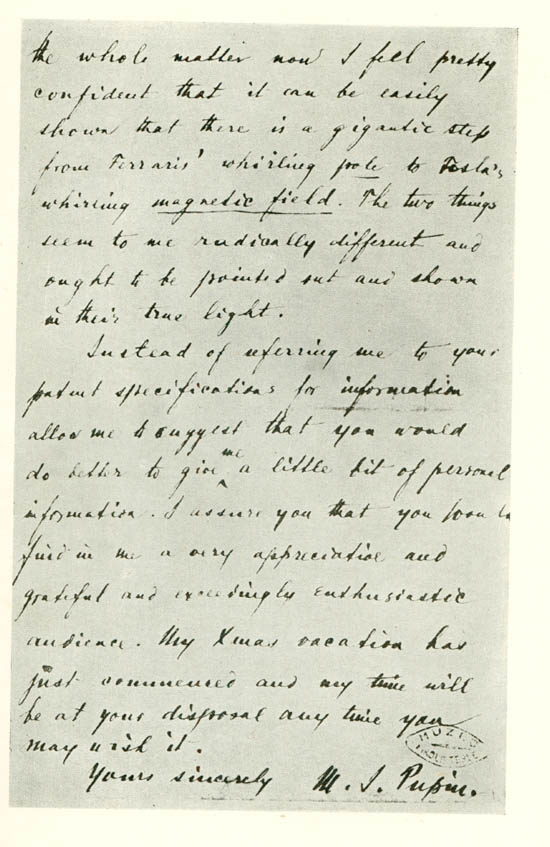 the whole matter now I feel pretty
confident that it can be easily
shown that there is a gigantic step
from Ferraris' whirling pole to Tesla's
whirling magnetic field. The two things
seem to me radically different and
ought to be pointed out and shown
in their true light.
Instead of referring me to your
patent specifications for information
allow me to suggest that you would
do better to give me a little bit of personal
information. I assure you that you
find in me a very appreciative and
grateful and exceedingly enthusiastic
audience. My Xmas vacation has
just commenced and my time will
be at your disposal any time you
may wish it.
Yours sincerely M. I. Pupin.